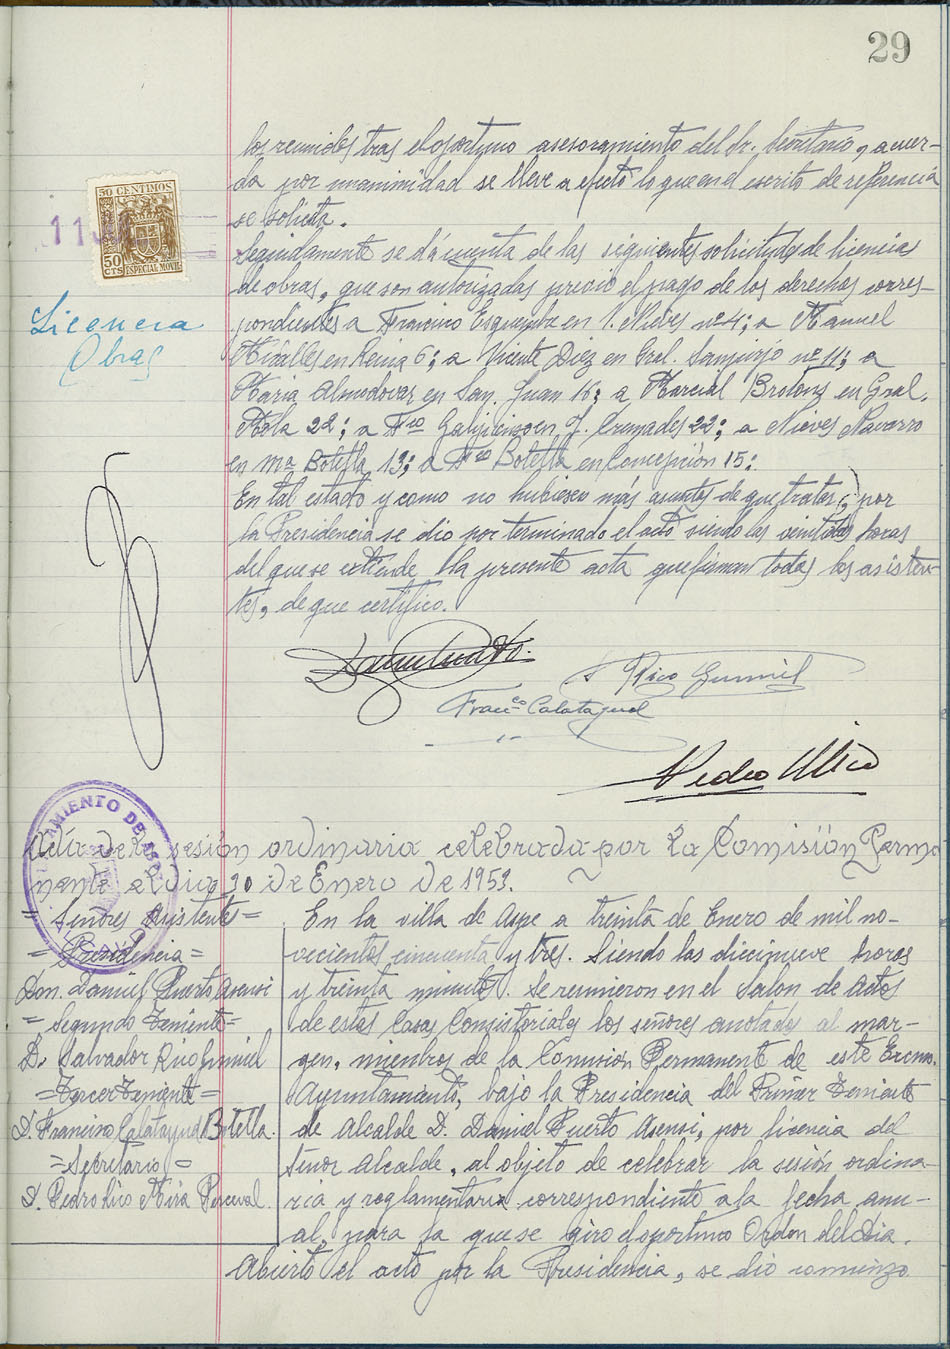 29
los reunidos tras el oportuno asesoramiento del Sr. Secretario, acuer-
da por unanimidad se lleve a efecto lo que en el escrito de referencia
se solicita.
50 CENTIMOS
50 CTS ESPECIAL MOVIL
Licencia
Obras
Seguidamente se dá cuenta de las siguientes solicitudes de licencia
de obras, que son autorizadas previo el pago de los derechos corres-
pondientes a Francisco Esquembre en V. Nieves nº 4; a Manuel
Miralles en Reina 6; a Vicente Diez en Gral. Sanjurjo nº 11; a
Maria Almodovar en San Juan 16; a Marcial Brotons en Gral.
Mola 22; a Fco en J. Cremades 22; a Nieves Navarro
en Mª Botella 13; a Fco Botella en Concepción 15;
En tal estado y como no hubiesen más asuntos de que tratar; por
la Presidencia se dio por terminado el acto siendo las veintidos horas
del que se extiende la presente acta que firman todos los asisten-
tes, de que certifico.
S. Rico Gumiel
Francco Calatayud
Pedro Mira
AYUNTAMIENTO DE ASPE
Acta de la sesión ordinaria celebrada por la Comisión Perma
nente el dia 30 de Enero de 1953.
= Señores Asistente =
= Presidencia =
Don. Daniel Puerto Asensi
= Segundo Teniente =
D. Salvador Rico Gumiel
= Tercer Teniente =
D. Francisco Calatayud Botella.
= Secretario =
D. Pedro Luis Mira Porcuval.
En la villa de Aspe a treinta de Enero de mil no-
vecientos cincuenta y tres. Siendo las diecinueve horas
y treinta minutos. Se reunieron en el Salon de Actos
de estas Casas Consistoriales los señores anotados al mar-
gen, miembros de la Comisión Permanente de este Excmo.
Ayuntamiento, bajo la Presidencia del Primer Teniente
de Alcalde D. Daniel Puerto Asensi, por licencia del
Señor Alcalde, al objeto de celebrar la sesión ordina-
ria y reglamentaria correspondiente a la fecha anu-
al, para la que se giro el oportuno Orden del Dia.
Abierto el acto por la Presidencia, se dio comienzo